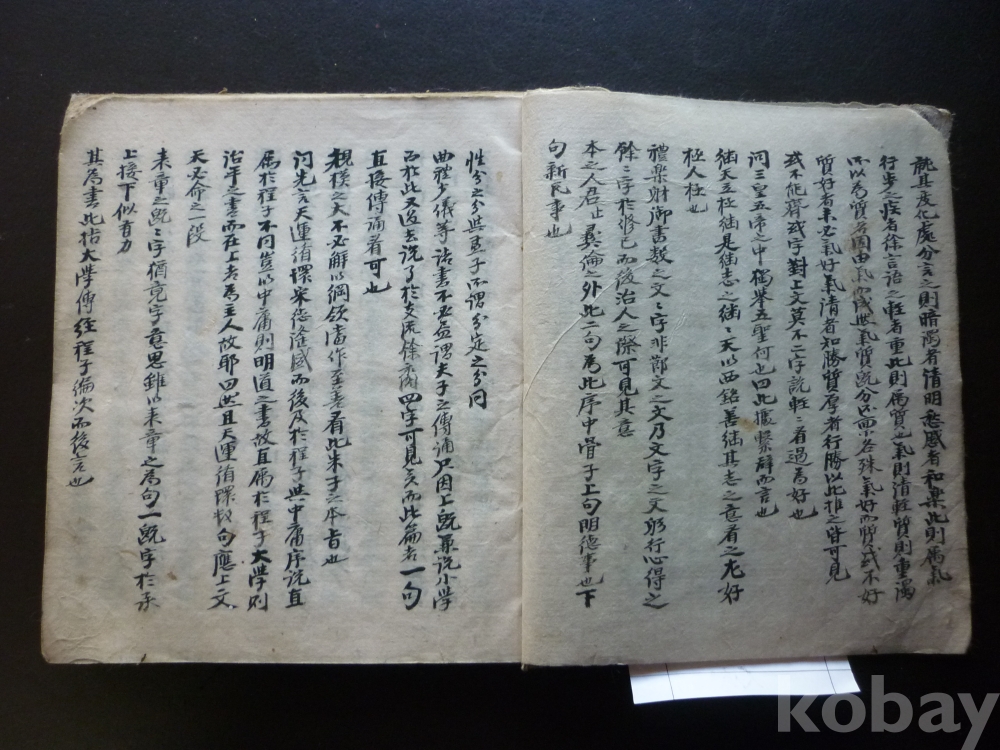 就其變化處分言之則暗濁者清明愁慼者和樂此則屬氣
行步之疾者徐言語之輕者重此則屬質也氣則清輕質則重濁
所以為質者固由氣而成然氣質既分亦不各殊氣好而質或不好
質好者未必氣好氣清者知勝質厚者行勝以此推之皆可見
或不能齊或字對上文莫不二字說輕輕看過為好也
問三皇五帝之中獨舉五聖何也曰此據繫辭而言也
繼天立極繼是繼志之繼繼天以西銘善繼其志之意看之尤好
極人極也
禮樂射御書數之文文字非節文之文乃文字之文躬行心得之
餘餘字於修己而後治人之際可見其意
本之人君止彝倫之外此二句為此序中骨子上句明德事也下
句新民事也
性分之分與孟子所謂分定之分同
曲禮少儀等諸書不必盡謂夫子之傳誦只因上既兼說小學
而於此又過去說了於支流餘裔四字可見矣而此篇者一句
直接傳誦看可也
規模之大不必解以綱領當作至善看此朱子之本旨也
問先言天運循環宋德隆盛而後及於程子與中庸序說直
屬於程子不同豈以中庸則明道之書故直屬於程子大學則
治平之書而在上者為主人故耶曰然且天運循環數句應上文
天必命之一段
未章之既既字猶竟字意思雖以未章之為句一既字於承
上接下似有力
其為書此指大學傳經程子編次而後言也